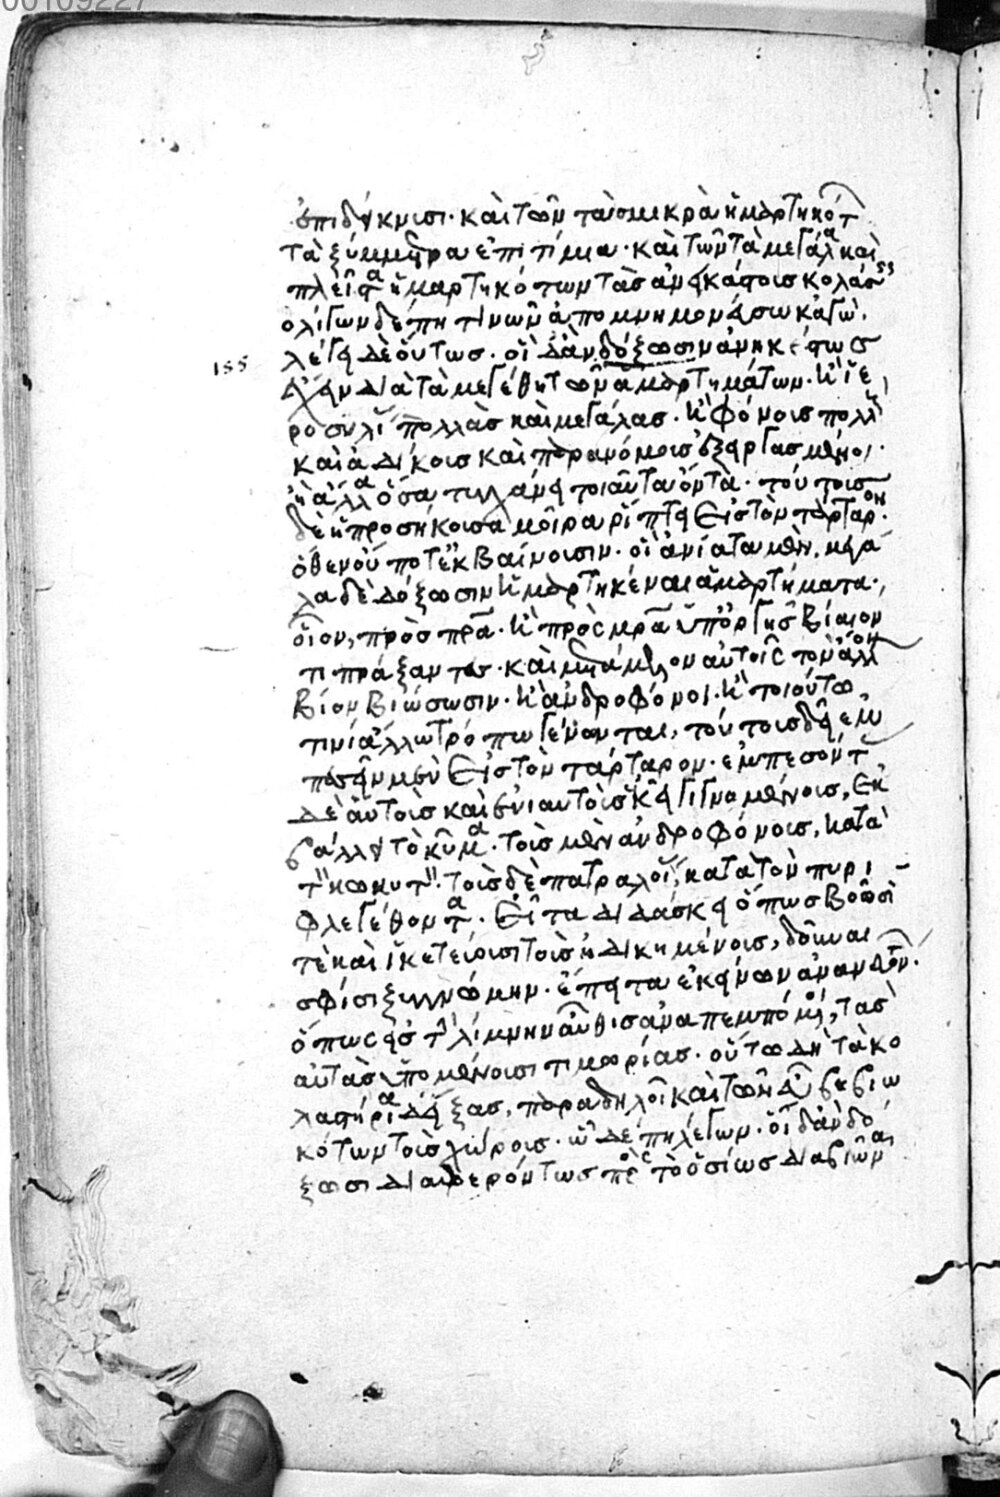 00109227
ἐπιδείκνυσι· καὶ τῶν τὰ σμικρὰ ἡμαρτηκότ
τὰ ξύμμετρα ἐπιτίμια· καὶ τῶν τὰ μεγάλα καὶ
πλεῖστα ἡμαρτηκότων τὰς ἀνηκέστους κολάσ
ὀλίγων δέ τινων ἀπομνημονεύσω κἀγώ.
155 λέγει δὲ οὕτως· οἳ δ' ἂν δόξωσιν ἀνηκέστως
ἔχειν διὰ τὰ μεγέθη τῶν ἁμαρτημάτων· ἢ ἱε
ροσυλίας πολλὰς καὶ μεγάλας· ἢ φόνους πολλ
καὶ ἀδίκους καὶ παρανόμους ἐξειργασμένοι·
ἢ ἄλλα ὅσα τυγχάνει τοιαῦτα ὄντα· τούτους
δὲ ἡ προσήκουσα μοῖρα ῥίπτει εἰς τὸν τάρταρον·
ὅθεν οὔποτ' ἐκβαίνουσιν· οἳ δ' ἂν ἰάσιμα μὲν, μεγά
λα δὲ δόξωσιν ἡμαρτηκέναι ἁμαρτήματα·
οἷον, πρὸς πρα· ἢ πρὸς μρα ὑπ' ὀργῆς βίαιόν
τι πράξαντες· καὶ μεταμέλον αὐτοῖς τὸν ἄλλον
βίον βιώσωσιν· ἢ ἀνδροφόνοι· ἢ τοιούτω
τινὶ ἄλλω τρόπω γένωνται, τούτοις δεῖ ἐμ
πεσεῖν μὲν εἰς τὸν τάρταρον· ἐμπεσόντ
δὲ αὐτοὺς καὶ ἐνιαυτὸν ἐκεῖ γιγνομένους, ἐκ
βάλλει τὸ κῦμα· τοὺς μὲν ἀνδροφόνους, κατὰ
τ κωκυτ· τοὺς δὲ πατραλοί, κατὰ τὸν πυρι
φλεγέθοντα· εἶτα διδάσκει ὅπως βοῶσί
τε καὶ ἱκετεύουσι τοὺς ἠδικημένους, δοῦναι
σφίσι ξυγγνώμην· ἔπειτα ἐκείνων ἀνανευόν·
ὅπως εἰς τ λίμνην αὖθις ἀναπεμπόμ, τὰς
αὐτὰς ὑπομένουσι τιμωρίας· οὕτω δὴ τὰ κο
λαστήρια δείξας, παραδηλοῖ καὶ τῶν εὖ βεβιω
κότων τοὺς χώρους· ὧδέ πη λέγων· οἳ δ' ἂν δό
ξωσι διαφερόντως πρὸς τὸ ὁσίως διαβιῶναι